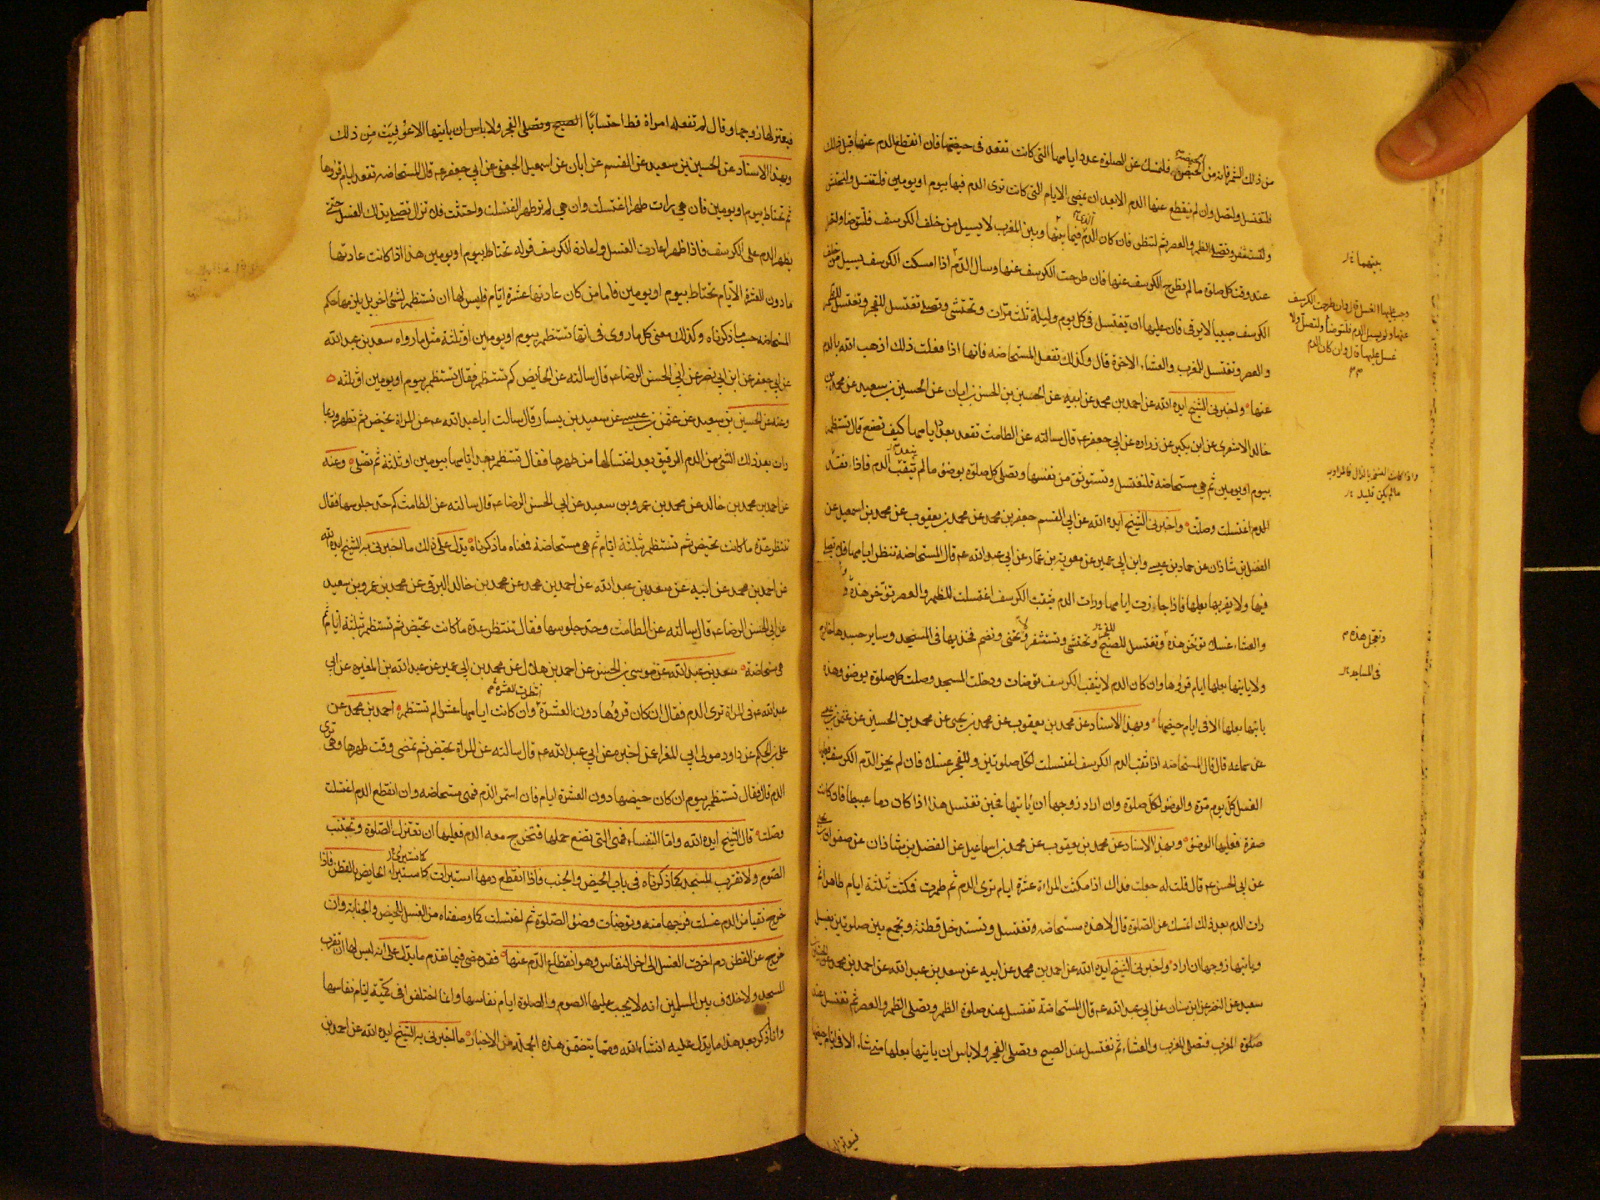 من ذلك الشهر فانه من الحيض فلتمسك عن الصلوة عدد ايامها التى كانت تقعد فى حيضها فان انقطع الدم عنها قبل ذلك
فلتغتسل ولتصل وان لم ينقطع عنها الدم الا بعد ان يمضى الايام التى كانت ترى الدم فيها بيوم او يومين فلتغتسل
ولتستثفر وتصلى الظهر والعصر ثم لتنظر فان كان الدم فيما بينها وبين المغرب لا يسيل من خلف الكرسف فلتتوضأ ولتصل
عند وقت كل صلوة ما لم تطرح الكرسف عنها فان طرحت الكرسف عنها وسال الدم اذا امسكت الكرسف يسيل من خلف
الكرسف صبيبا لا يرقى فان عليها ان تغتسل فى كل يوم وليلة ثلث مرات وتحتشى وتصلى تغتسل للفجر وتغتسل للظهر
والعصر وتغتسل للمغرب والعشاء الاخرة قال وكذلك تفعل المستحاضه فانها اذا فعلت ذلك اذهب الله بالدم
عنها واخبرنى الشيخ ايده الله عن احمد بن محمد عن ابيه عن الحسين بن الحسن بن ابان عن الحسين بن سعيد عن محمد بن
خالد الاشعرى عن ابن بكير عن زراره عن ابى جعفر ع قال سالته عن الطامث تقعد بعدد ايامها كيف تصنع قال تستظهر
بيوم او يومين ثم هى مستحاضه فلتغتسل وتستوثق من نفسها وتصلى كل صلوة بوضوء ما لم ينفذ الدم فاذا نفذ
الدم اغتسلت وصلت واخبرنى الشيخ ايده الله عن ابى القسم جعفر بن محمد عن محمد بن يعقوب عن محمد بن اسمعيل عن
الفضل بن شاذان عن حماد بن عيسى وابن ابى عمير عن معوية بن عمار عن ابى عبد الله ع قال المستحاضه تنظر ايامها فلا تصلى
فيها ولا يقربها بعلها فاذا جازت ايامها ورات الدم يثقب الكرسف اغتسلت للظهر والعصر تؤخر هذه
والعشاء غسلا تؤخر هذه وتغتسل للصبح وتحتشى وتستثفر وتضم فخذيها فى المسجد وساير جسدها خارج
ولا ياتيها بعلها ايام قروءها وان كان الدم لا يثقب الكرسف توضات ودخلت المسجد وصلت كل صلوة بوضوء وهذه
ياتيها بعلها الا فى ايام حيضها وبهذا الاسناد عن محمد بن يعقوب عن محمد بن يحيى عن محمد بن الحسين عن عثمن بن عيسى
عن سماعه قال قال المستحاضه اذا ثقب الدم الكرسف اغتسلت لكل صلوتين وللفجر غسلا فان لم يجز الدم الكرسف فعليها
الغسل كل يوم مرة والوضوء لكل صلوة وان اراد زوجها ان ياتيها فحين تغتسل هذا اذا كان دما عبيطا فان كانت
صفرة فعليها الوضوء وبهذا الاسناد عن محمد بن يعقوب عن محمد بن اسماعيل عن الفضل بن شاذان عن صفوان بن يحيى
عن ابى الحسن ع قال قلت له جعلت فداك اذا مكثت المراة عشرة ايام ترى الدم ثم طهرت فمكثت ثلثة ايام طاهرا ثم
رات الدم بعد ذلك اتمسك عن الصلوة قال لا هذه مستحاضه وتغتسل وتستدخل قطنة وتجمع بين صلوتين بغسل
وياتيها زوجها ان اراد واخبرنى الشيخ ايده الله عن احمد بن محمد عن ابيه عن سعد بن عبد الله عن احمد بن محمد عن الحسين بن
سعيد عن النضر عن ابن سنان عن ابى عبد الله ع قال المستحاضة تغتسل عند صلوة الظهر وتصلى الظهر والعصر ثم تغتسل عند
صلوة المغرب فتصلى المغرب والعشاء ثم تغتسل عند الصبح وتصلى الفجر ولا باس ان ياتيها بعلها متى شاء الا فى ايام حيضها
بينهما
وجب عليها الغسل قال وان طرحت الكرسف
عنها ولم يسيل الدم فلتتوضأ ولتصل ولا
غسل عليها قال وان كان الدم
وتعجل هذه
فى المسجد
فيعتزلها
فيعتزلها زوجها وقال لم تفعله امراة قط احتسابا الصبح وتصلى الفجر ولا باس ان ياتيها الا عوفيت من ذلك
وبهذا الاسناد عن الحسين بن سعيد عن القسم عن ابان عن اسمعيل الجعفى عن ابى جعفر ع قال المستحاضه تقعد ايام قروها
ثم تحتاط بيوم او يومين فان هى رات طهرا اغتسلت وان هى لم تر طهرا اغتسلت واحتشت فلا تزال تصلى بذلك الغسل حتى
يظهر الدم على الكرسف فاذا ظهر اعادت الغسل واعادة الكرسف قوله تحتاط بيوم او يومين هذا اذا كانت عادتها
ما دون العشرة الايام تحتاط بيوم او يومين فاما من كان عادتها عشرة ايام فليس لها ان تستظهر لشئ اخر بل يلزمها حكم
المستحاضه حسب ما ذكرناه وكذلك معنى كل ما روى فى انها تستظهر بيوم او يومين او ثلثة مثل ما رواه سعد بن عبد الله
عن ابى جعفر عن ابن ابى نصر عن ابى الحسن الرضا ع قال سالته عن الحايض كم تستظهر فقال تستظهر بيوم او يومين او ثلثه
وعنه عن الحسين بن سعيد عن عثمن بن عيسى عن سعيد بن يسار قال سالت ابا عبد الله ع عن المراة تحيض ثم تطهر وربما
رات بعد ذلك الشئ من الدم الرقيق بعد اغتسالها من طهرها فقال تستظهر بعد ايامها بيومين او ثلثة ثم تصلى وعنه
عن احمد بن محمد بن خالد عن محمد بن عمرو بن سعيد عن ابى الحسن الرضا ع قال سالته عن الطامث كم حد جلوسها فقال
تنتظر عدة ما كانت تحيض ثم تستظهر بثلثة ايام ثم هى مستحاضة فمعناه ما ذكرناه يدل على ذلك ما اخبرنى به الشيخ ايده الله
عن احمد بن محمد عن ابيه عن سعد بن عبد الله عن احمد بن محمد عن محمد بن خالد البرقى عن محمد بن عمرو بن سعيد
عن ابى الحسن الرضا ع قال سالته عن الطامث وحد جلوسها فقال تنتظر عدة ما كانت تحيض ثم تستظهر بثلثة ايام ثم
هى مستحاضة سعد بن عبد الله عن موسى بن الحسن عن احمد بن هلال عن محمد بن ابى عمير عن عبد الله بن المغيره عن ابى
عبد الله ع فى المراة ترى الدم فقال ان كان قروها دون العشرة انتظرت العشرة وان كانت ايامها عشرا لم تستظهر احمد بن محمد عن
على بن الحكم عن داود مولى ابى المغرا عمن اخبره عن ابى عبد الله ع قال سالته عن المراة تحيض ثم تمضى وقت طهرها وهى ترى
الدم قال فقال تستظهر بيوم ان كان حيضها دون العشرة ايام فان استمر الدم فهى مستحاضه وان انقطع الدم اغتسلت
وصلت قال الشيخ ايده الله واما النفساء فهى التى تضع حملها فتخرج معه الدم فعليها ان تعتزل الصلوة وتجتنب
الصوم ولا تقرب المسجد كما ذكرناه فى باب الحيض والجنب فاذا انقطع دمها استبرات كاستبراء الحايض بالقطن فاذا
خرج نقيا من الدم غسلت فرجها منه وتوضات وضوء الصلوة ثم اغتسلت كما وصفناه من الغسل للحيض والجنابة وان
خرج على القطن دم اخرت الغسل الى اخر النفاس وهو انقطاع الدم عنها فقد مضى فيما تقدم ما يدل على انه ليس لها ان تقرب
المسجد ولا خلاف بين المسلمين انه لا يجب عليها الصوم والصلوة ايام نفاسها وانما اختلفوا فى كمية ايام نفاسها
وانا اذكر بعد هذا ما يدل عليه ان شاء الله ومما يتضمن هذه الجملة من الاخبار ما اخبرنى به الشيخ ايده الله عن احمد بن